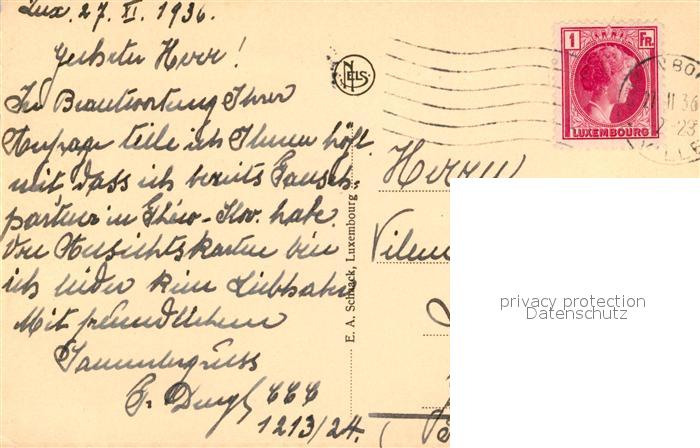 Lux. 27. II. 1936.
Geehrter Herr!
In Beantwortung Ihrer
Anfrage teile ich Ihnen höfl.
mit dass ich bereits Tausch-
partner in habe.
Von Ansichtskarten bin
ich leider kein Liebhaber
Mit freundlichem
Sammlergruss
CCC
1213/24.
NELS
E. A. Schaack, Luxembourg
1 FR.
LUXEMBOURG
36
VILLE
Herrn
Vilem
privacy protection
Datenschutz